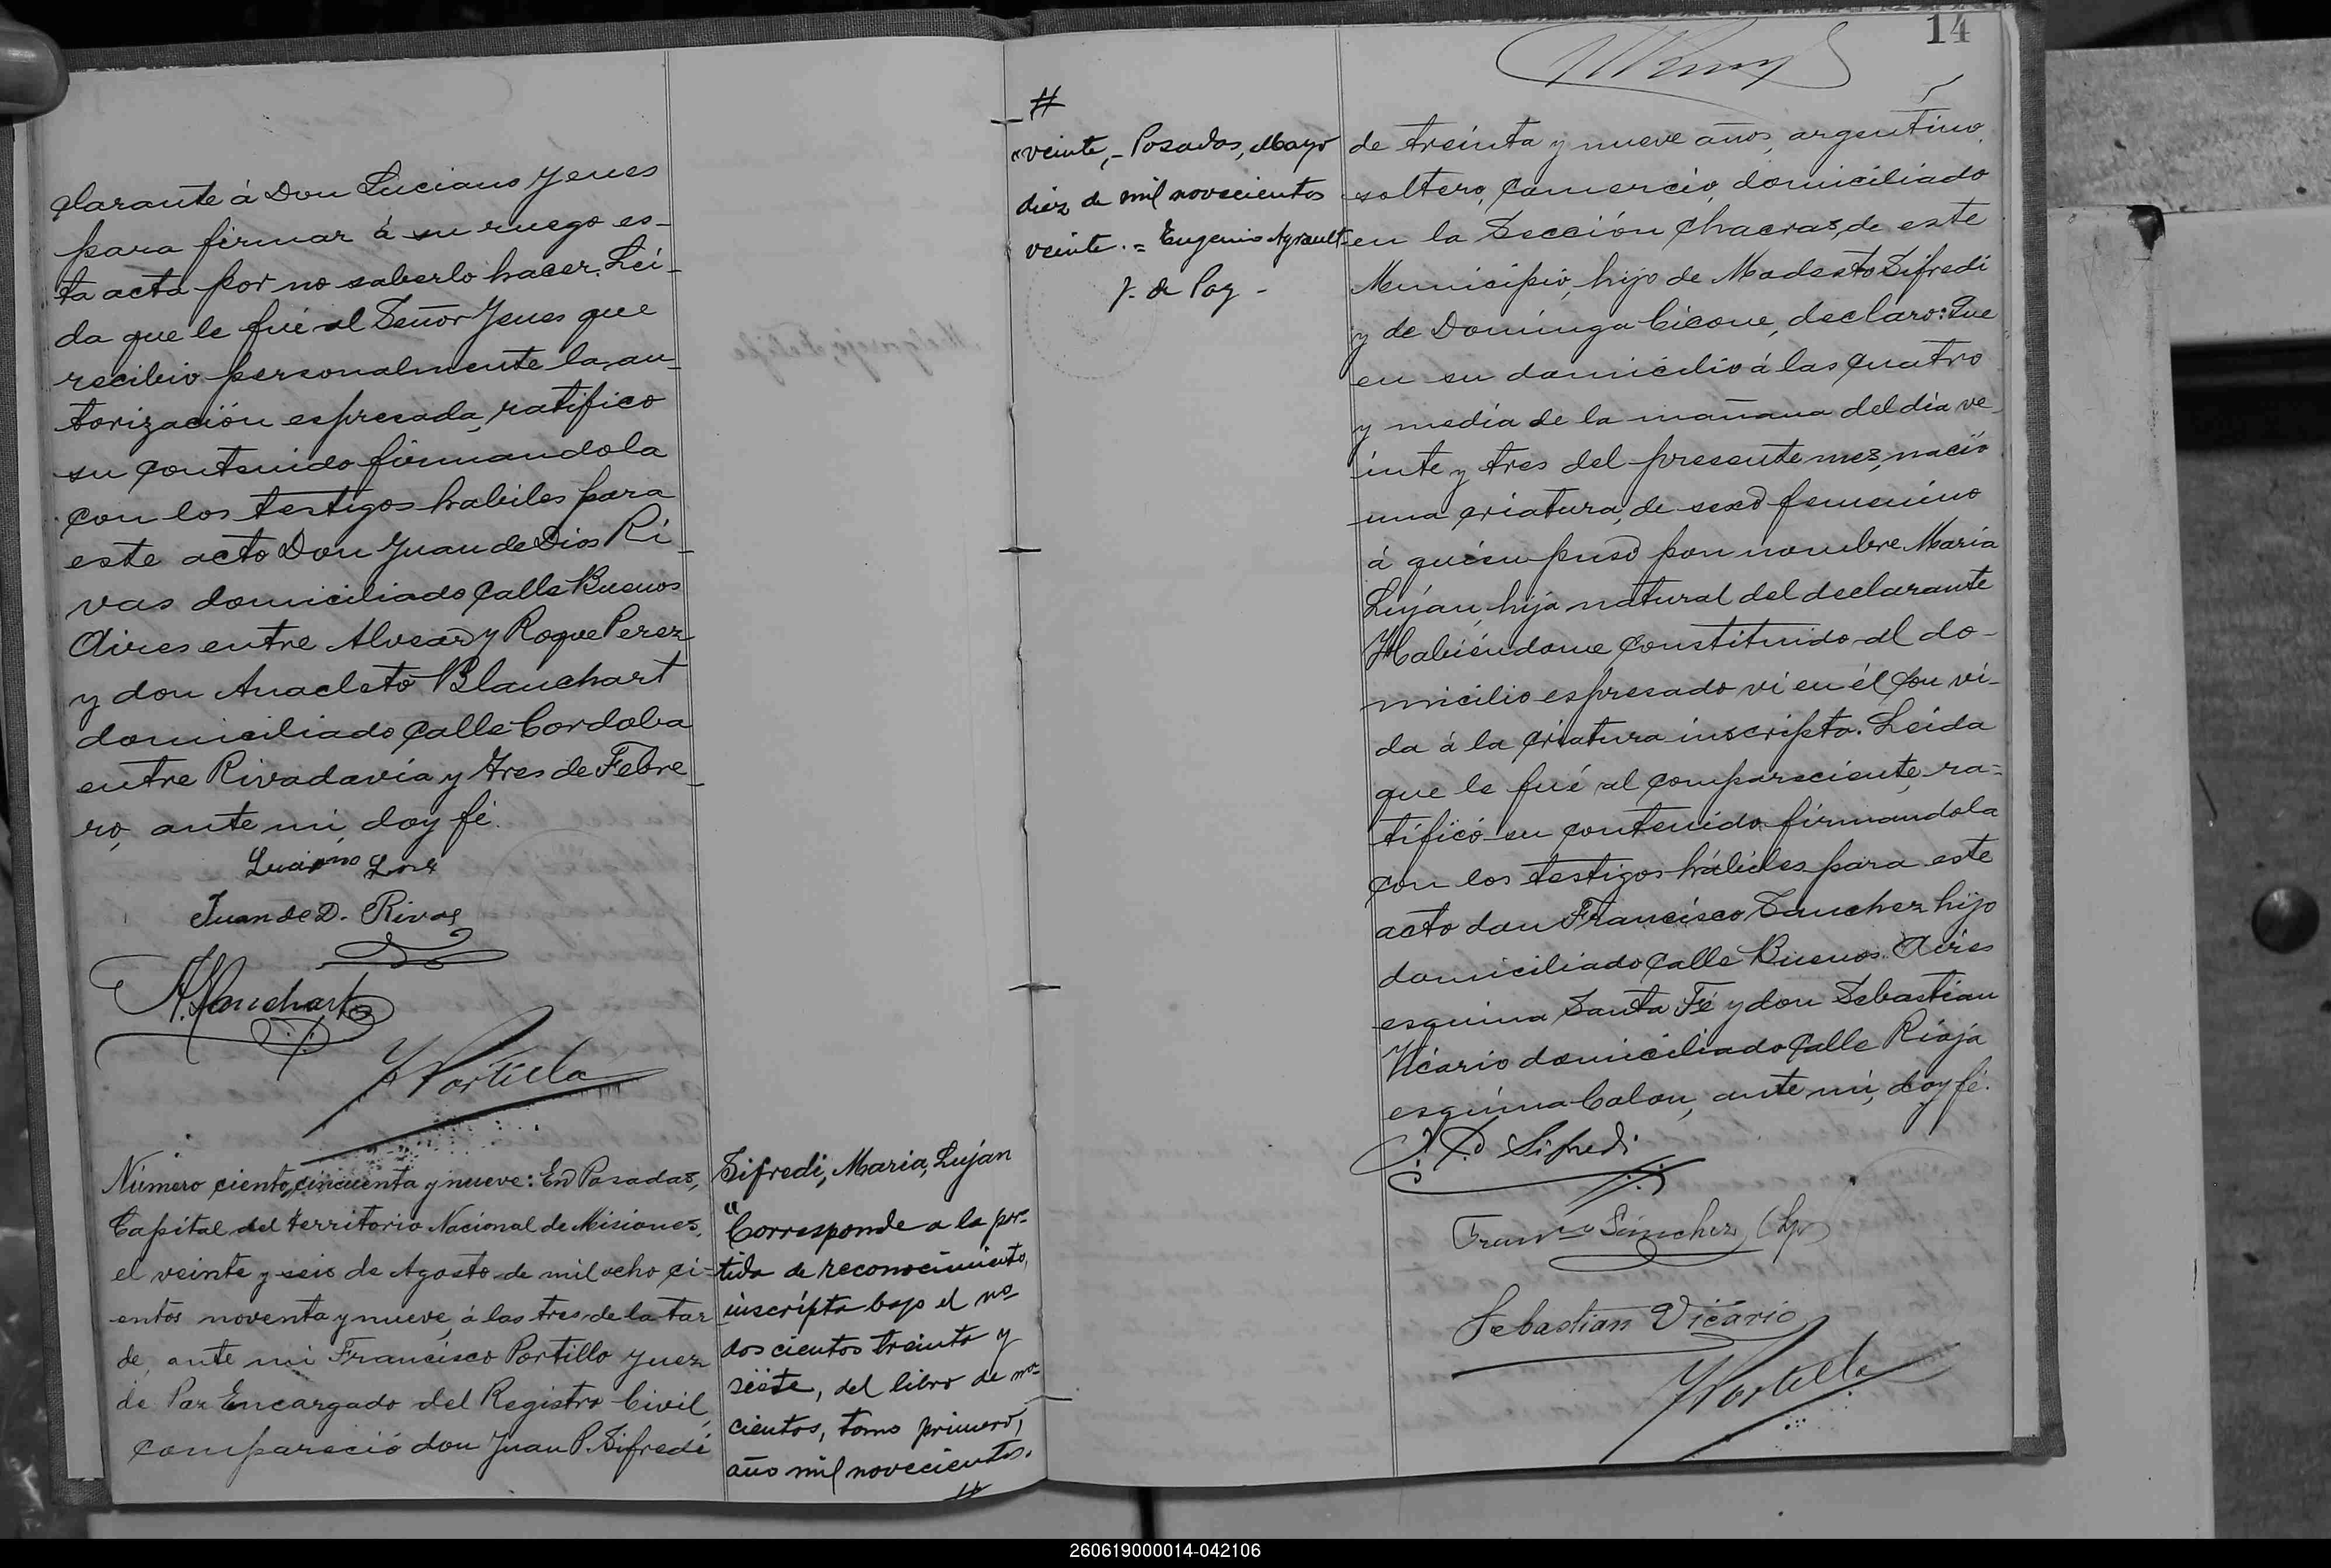 clarante á Don Luciano Yenes
para firmar á su ruego es-
ta acta por no saberlo hacer. Leí-
da que le fué al Señor Yenes que
recibio personalmente la au-
torización espresada, ratifico
su contenido firmandola
con los testigos habiles para
este acto Don Juan de Dios Ri-
vas domiciliado calle Buenos
Aires entre Alvear y Roque Perez
y don Anacleto Blanchart
domiciliado calle Cordoba
entre Rivadavia y Tres de Febre-
ro, ante mi, doy fé.
Juan de D. Rivas
A. Blanchart
F Portillo
Número ciento, cincuenta y nueve: En Posadas,
Capital del territorio Nacional de Misiones,
el veinte y seis de Agosto de mil ocho ci-
entos noventa y nueve, á las tres de la tar
de, ante mi Francisco Portillo Juez
de Paz Encargado del Registro Civil,
compareció don Juan P. Sifredi
Sifredi, Maria, Luján
"Corresponde a la par-
tida de reconocimiento,
inscripta bajo el no
dos cientos treinta y
siete, del libro de na-
cientos, tomo primero,
año mil novecientos.
#
14
#
"veinte, - Posadas, Mayo
diez de mil novecientos
veinte. = Eugenio
J. de Paz -
de treinta y nueve años, argentino,
soltero, comercio, domiciliado
en la Sección Chacras, de este
Municipio, hijo de Modesto Sifredi
y de Dominga Cicone, declaro: Que
en su domicilio á las cuatro
y media de la mañana del dia ve-
inte y tres del presente mes, nació
una criatura, de sexo femenino
á quien puso por nombre Maria
Luján, hija natural del declarante
Habiéndome constituido al do-
micilio espresado vi en él con vi-
da á la criatura inscripta. Leida
que le fué al compareciente, ra-
tificó su contenido firmandola
con los testigos hábiles para este
acto don Francisco Sanchez hijo
domiciliado calle Buenos Aires
esquina Santa Fé y don Sebastian
Vicario domiciliado calle Rioja
esquina Colon, ante mi, doy fé.
J. P. Sifredi
Franco Sánchez (hijo)
Sebastian Vicario
F Portillo
260619000014-042106